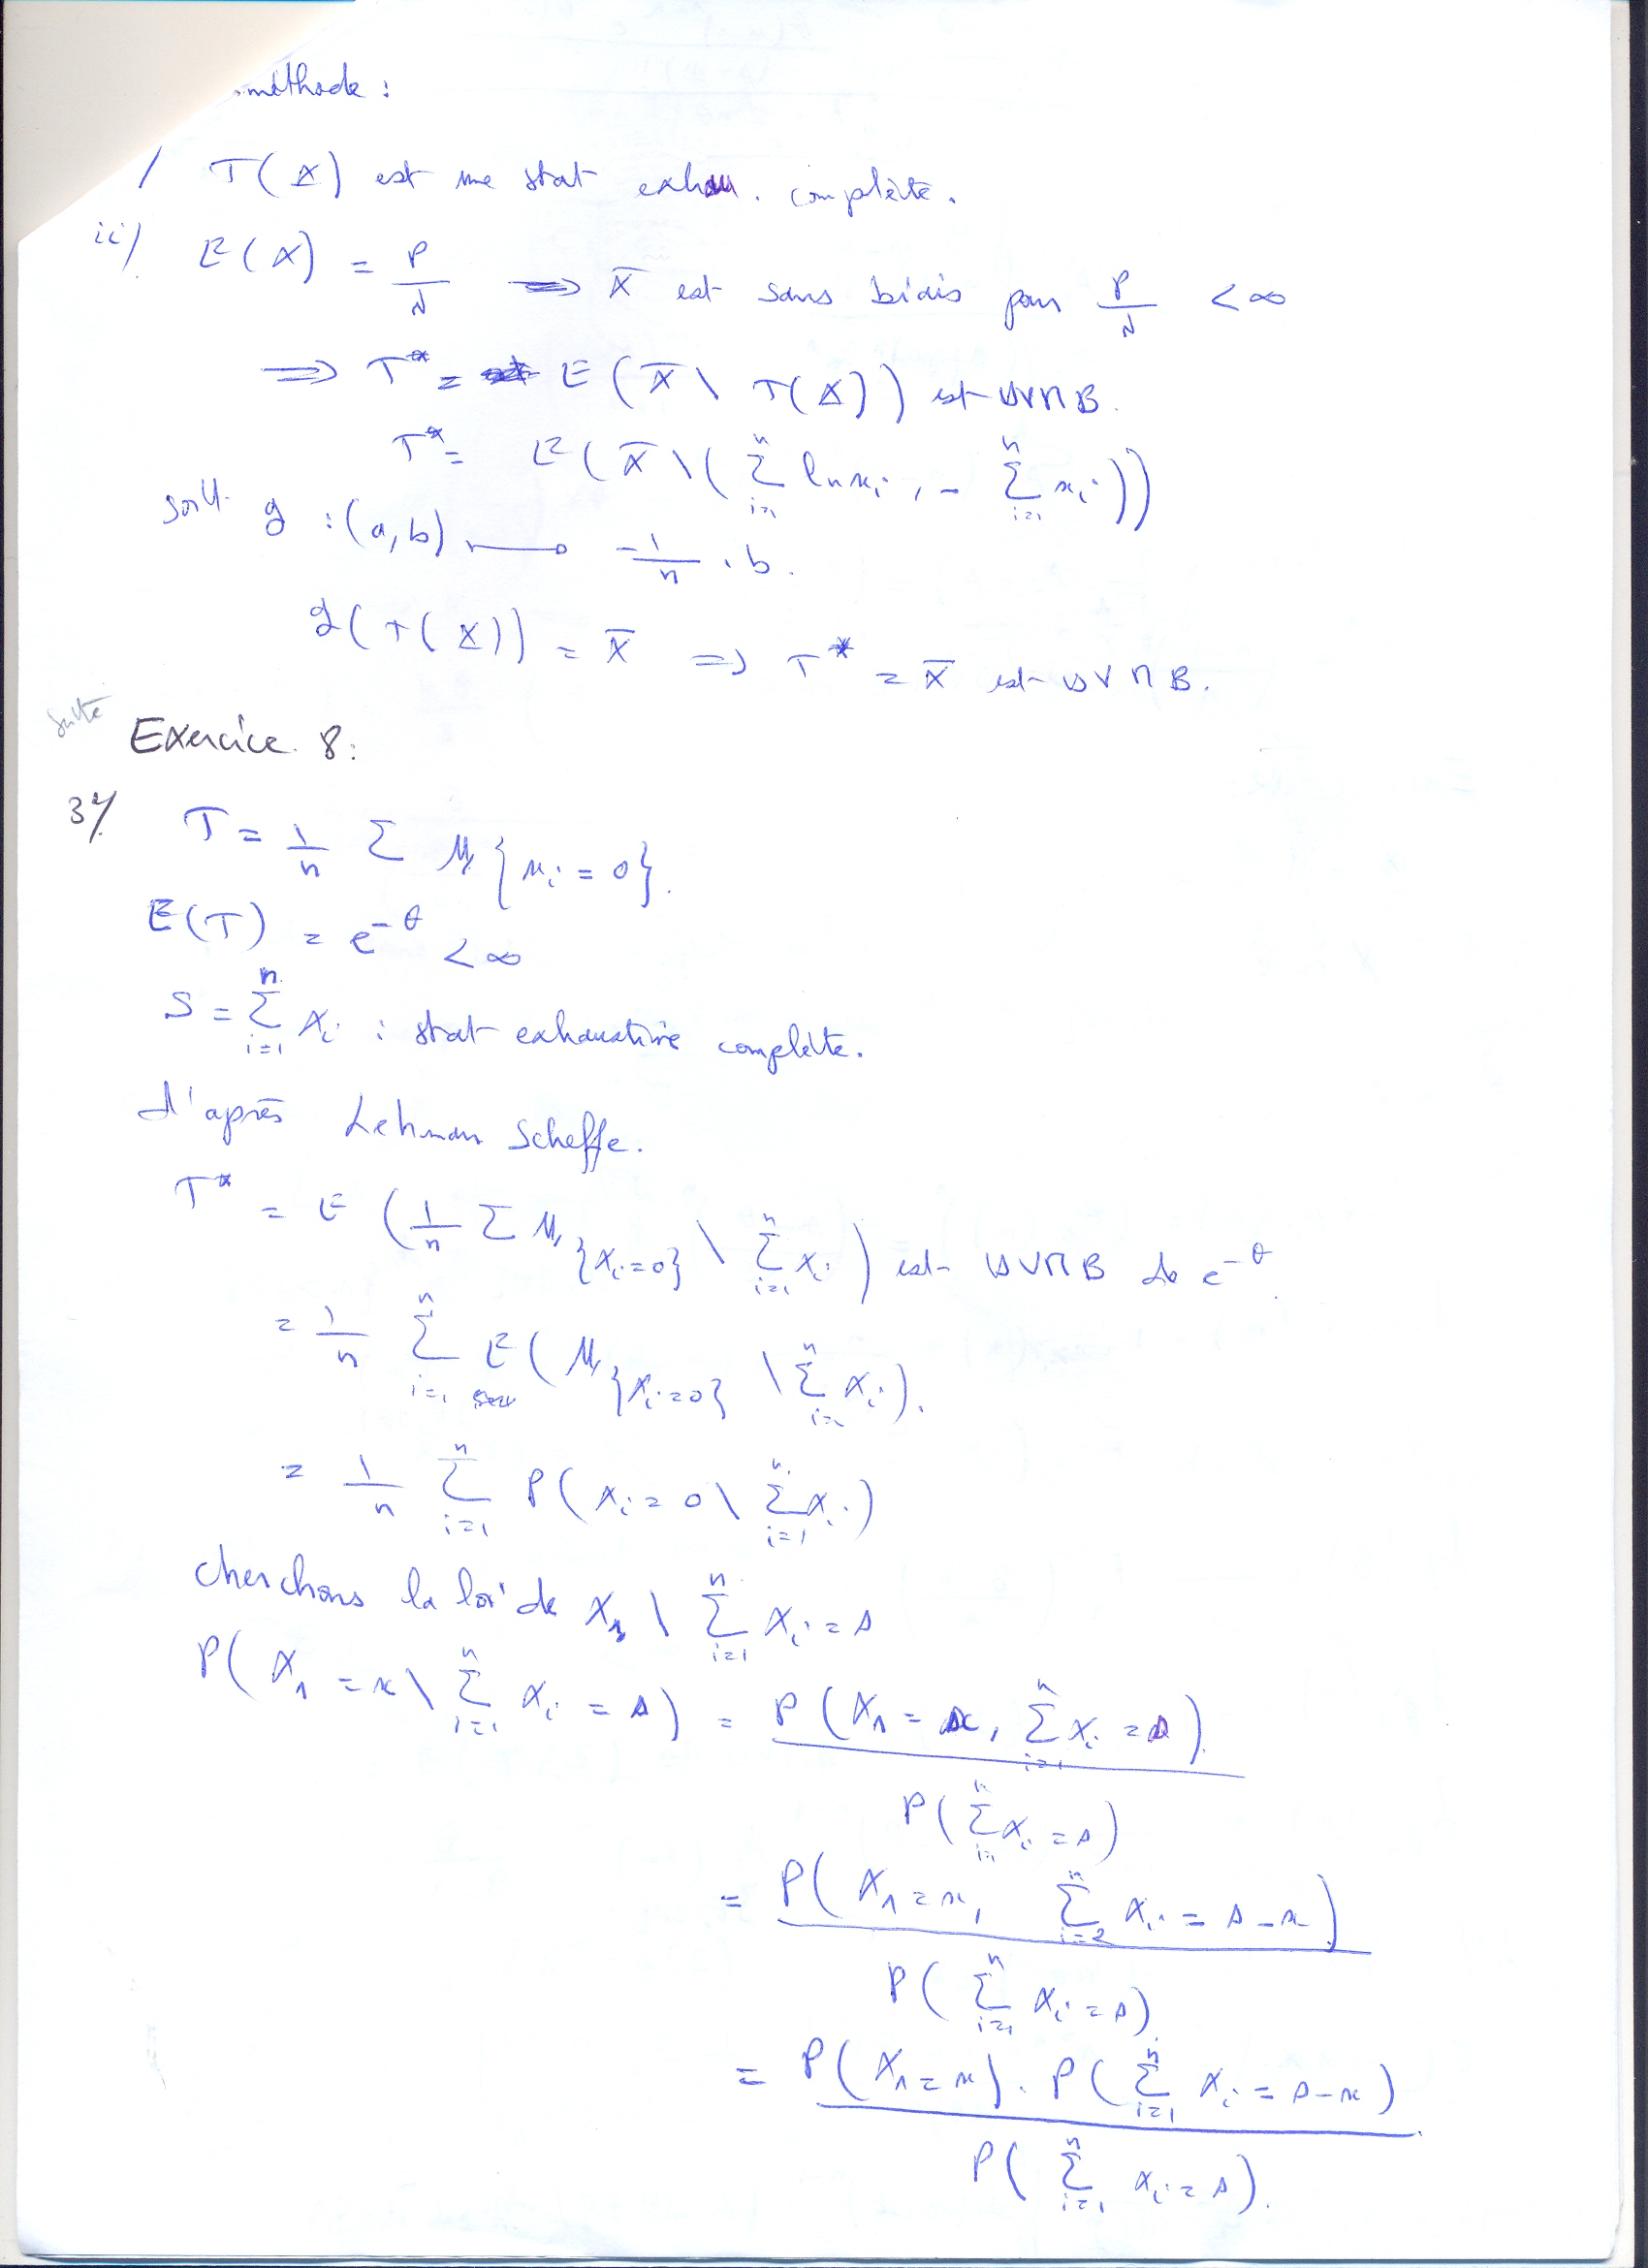 méthode :
/ T(X) est une stat exhau. complète.
ii/ E(X) = p/λ ⟹ X̄ est sans biais pour p/λ < ∞
⟹ T* = E(X̄ \ T(X)) est SVMB.
T* = E(X̄ \ (∑_{i=1}^{n} ln xi, - ∑_{i=1}^{n} xi))
soit g : (a,b) ⟼ -1/n . b.
g(T(X)) = X̄ ⟹ T* = X̄ est SVMB.
suite
Exercice 8:
3°/ T = 1/n ∑ 1{xi = 0}.
E(T) = e^{-θ} < ∞
S = ∑_{i=1}^{n} Xi : stat exhaustive complète.
d'après Lehman Scheffe.
T* = E(1/n ∑ 1{Xi=0} \ ∑_{i=1}^{n} Xi) est SVMB de e^{-θ}.
= 1/n ∑_{i=1}^{n} E(1{Xi=0} \ ∑_{i=1}^{n} Xi).
= 1/n ∑_{i=1}^{n} P(Xi = 0 \ ∑_{i=1}^{n} Xi)
cherchons la loi de X1 \ ∑_{i=1}^{n} Xi = s
P(X1 = x \ ∑_{i=1}^{n} Xi = s) = P(X1 = x, ∑_{i=1}^{n} Xi = s) / P(∑_{i=1}^{n} Xi = s)
= P(X1 = x, ∑_{i=2}^{n} Xi = s-x) / P(∑_{i=1}^{n} Xi = s)
= P(X1 = x) . P(∑_{i=1}^{n} Xi = s-x) / P(∑_{i=1}^{n} Xi = s).